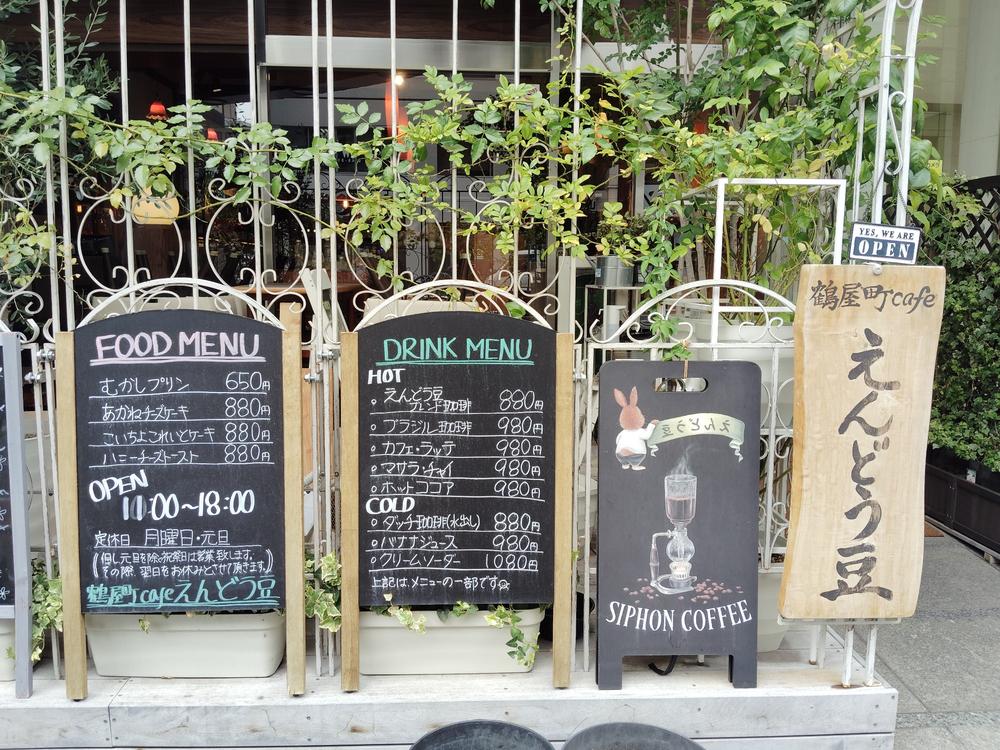 FOOD MENU
むかしプリン 650円
あかねチーズケーキ 880円
こいちょこれいとケーキ 880円
ハニーチーズトースト 880円
OPEN
10:00~18:00
定休日 月曜日・元旦
(但し元旦を除く祝祭日は営業致します。
その際、翌日をお休みとさせて頂きます。)
鶴屋町cafeえんどう豆
DRINK MENU
HOT
えんどう豆
ブレンド珈琲 880円
ブラジル珈琲 980円
カフェ・ラッテ 980円
マサラ・チャイ 980円
ホットココア 980円
COLD
ダッチ珈琲(水出し) 880円
バナナジュース 980円
クリームソーダー 1080円
上記は、メニューの一部です
えんどう豆
SIPHON COFFEE
YES, WE ARE
OPEN
鶴屋町cafe
えんどう豆